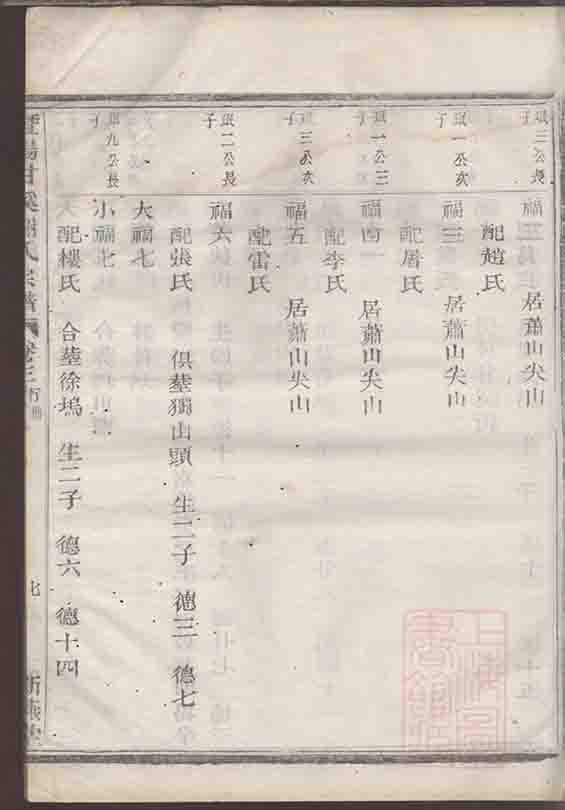 珉三公長子
福二 居蕭山尖山
配趙氏
珉一公次子
福三 居蕭山尖山
配屠氏
珉一公三子
福四 居蕭山尖山
配李氏
珉三公次子
福五 居蕭山尖山
配雷氏
珉二公長子
福六
配張氏 俱塟獨山頭 生二子 德三 德七
大福七
珉九公長子
小福七
配樓氏 合塟徐塢 生二子 德六 德十四
氏宗譜 卷三 行冊
七
上海圖書館藏